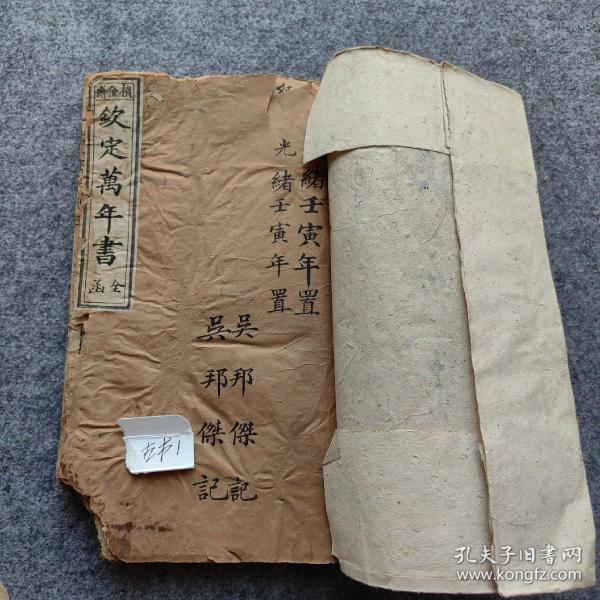 欽定萬年書
全函
緒壬寅年置
光緒壬寅年置
吳邦傑記
吳邦傑記
古书1
孔夫子旧书网
www.kongfz.com